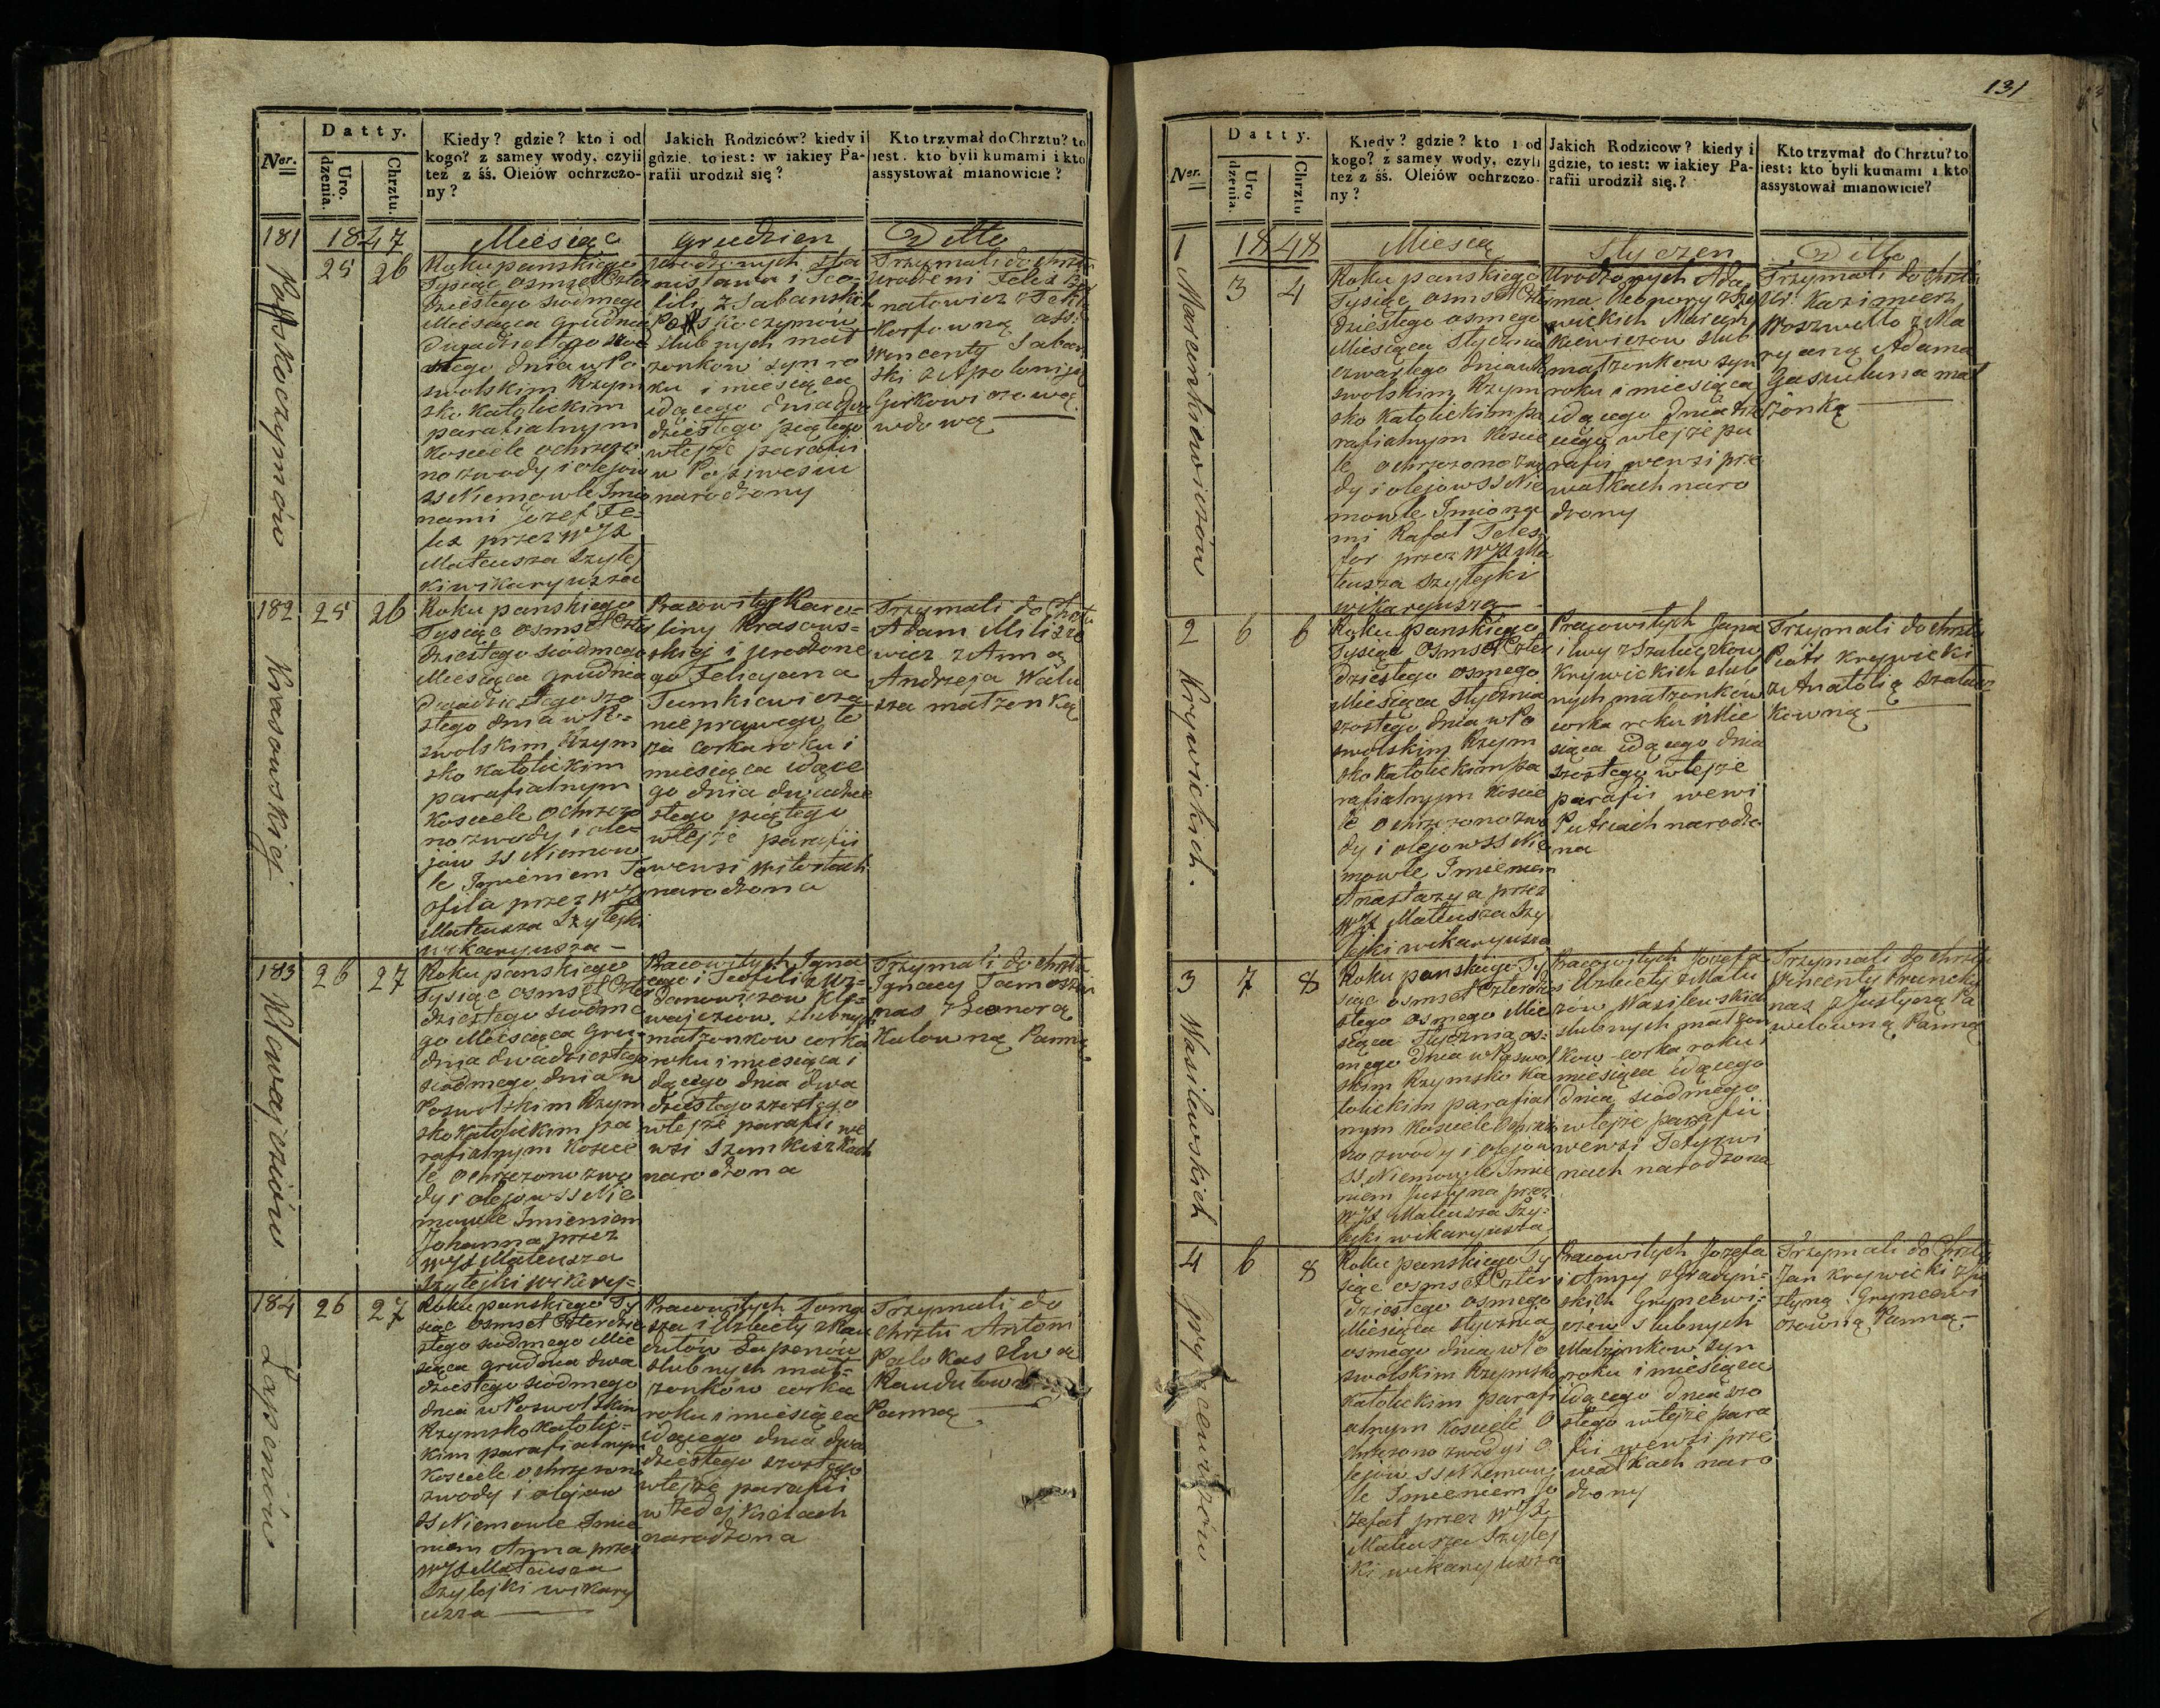 131
Datty.
Ner.
Uro.
dzenia.
Chrztu.
Kiedy? gdzie? kto i od
kogo? z samey wody, czyli
też z śś. Oleiów ochrzczo-
ny?
Jakich Rodziców? kiedy i
gdzie, to iest: w iakiey Pa-
rafii urodził się?
Kto trzymał do Chrztu? to
iest. kto byli kumami i kto
assystował mianowicie?
181
1847
Miesiąc
Grudzien
Ditto
25 26
Roku panskiego
Tysiąc osmset Czter
dziestego siodmego
Miesiąca Grudnia
Dwadziestego szo
stego dnia w Po
swolskim Rzym
sko Katolickim
parafialnym
Kosciele ochrzczo
no z wody i olejow
SS Niemowle Imio
nami Jozef Fe-
lix przez WJX
Mateusza Szylej
ki wikaryusza
Urodzonych Sta
nisława i Teo
fili z Sabanskich
slubnych mał
zonkow syn ro
ku i miesiąca
idącego dnia dwa
dziestego piątego
w tejże parafii
narodzony
Trzymali do chrztu
Urodzeni Felix
ass:
Wincenty Saban
ski z Apoloniją
wdową
182
25 26
Krasowskiej
Roku panskiego
Tysiąc osmset Czter
dziestego siodmego
Miesiąca Grudnia
Dwadziestego szo
stego dnia w Po-
swolskim Rzym
sko Katolickim
parafialnym
Kosciele ochrzczo
no z wody i ole-
jow SS Niemow
le Imieniem Te
ofila przez WJX
Mateusza Szylejki
wikaryusza -
Pracowitej Karo-
liny Krasows-
kiej i urodzone
go Felicyana
Tumkiewicza
nieprawego ło
za corka roku i
miesiąca idące
go dnia dwadzie
stego piątego
w tejże parafii
we wsi
narodzona
Trzymali do Chrztu
Adam
wicz z Anną
Andrzeja
sza małzonką
183
26 27
Roku panskiego
Tysiąc osmset Czter
dziestego siodme
go Miesiąca Gru-
dnia dwadziestego
siodmego dnia w
Poswolskim Rzym
sko Katolickim pa
rafialnym Koscie
le ochrzczono z wo
dy i olejow SS Nie
mowle Imieniem
Johanna przez
WJX Mateusza
Szylejki wikary-
Pracowitych Igna
cego i Teofili
slubnych
małzonkow corka
roku i miesiąca i
dącego dnia dwa
dziestego szostego
w tejże parafii we
wsi Szemkiszkach
narodzona
Trzymali do chrztu
Ignacy
nas z Eleonorą
Panną
184
26 27
Łapeniow
Roku panskiego Ty
siąc osmset Czterdzie
stego siodmego Mie
siąca Grudnia dwa
dziestego siodmego
dnia w Poswolskim
Rzymsko Katolic-
kim parafialnym
Kosciele ochrzczono
z wody i olejow
SS Niemowle Imie
niem Anna przez
WJX Mateusza
Szylejki wikary
usza
Pracowitych Toma
sza i Elzbiety z Rau
dutow Łapeniow
slubnych mał-
zonków corka
roku i miesiąca
idącego dnia dwa
dziestego szostego
w tejże parafii
narodzona
Trzymali do
chrztu Antoni
Palokas z Ewą
Raudutowną
Panną
Datty.
Ner.
Uro
dzenia.
Chrztu
Kiedy? gdzie? kto i od
kogo? z samey wody, czyli
też z śś. Oleiów ochrzczo-
ny?
Jakich Rodzicow? kiedy i
gdzie, to iest: w iakiey Pa-
rafii urodził się.?
Kto trzymał do Chrztu? to
iest: kto byli kumami i kto
assystował mianowicie?
1
1848
Miesią
Styczen
Ditto
3 4
Marcinkiewiczów
Roku panskiego
Tysiąc osmset Czter
dziestego osmego
Miesiąca Stycznia
czwartego dnia w Po
swolskim Rzym
sko Katolickim pa
rafialnym Koscie
le ochrzczono z wo
dy i olejow SS Nie
mowle Imiona
mi Rafał Teles
for przez WJX Ma
teusza Szylejki
wikaryusza
Urodzonych Ada
ma Eleonory
wickich Marcin
kiewiczow slub
małzonkow syn
roku i miesiąca
idącego dnia trze
ciego w tejże pa
rafii we wsi prze
wałkach naro
dzony
Trzymali do chrztu
Kazimierz
Woszwiłło z Ma
ryanną Adama
mał
żonką
2
6 6
Krywickich.
Roku panskiego
Tysiąc Osmset Czter
dziestego osmego
Miesiąca Stycznia
szostego dnia w Po
swolskim Rzym
sko Katolickim pa
rafialnym Koscie
le ochrzczono z wo
dy i olejow SS Nie
mowle Imieniem
Anastazya przez
WJX Mateusza Szy
lejki wikaryusza
Pracowitych Jana
i Ewy
Krywickich slub
nych małzonków
corka roku i Mie
siąca idącego dnia
szostego w tejże
parafii we wsi
Putriach narodzo
na
Trzymali do chrztu
Piotr Krywicki
z Anatolią
kowną
3
7 8
Wasilewskich
Roku panskiego Ty
siąc osmset Czterdzie
stego osmego Mie
siąca Stycznia os-
mego dnia w Poswol
skim Rzymsko Ka
tolickim parafial
nym Kosciele Ochrzczo
no z wody i olejow
SS Niemowle Imie
niem Justyna przez
WJX Mateusza Szy-
lejki wikaryusza
Pracowitych Jozefa
i Elzbiety z Matu
zów Wasilewskich
slubnych małzon
kow corka roku i
miesiąca idącego
dnia siodmego
w tejże parafii
we wsi
nach narodzona
Trzymali do chrztu
Wincenty
nas z Justyną Pa
welowną Panną
4
6 8
Roku panskiego Ty
siąc osmset Czter
dziestego osmego
Miesiąca Stycznia
osmego dnia w Po
swolskim Rzymsko
Katolickim parafi
alnym Kosciele O
chrzczono z wody i O
lejow SS Niemow
le Imieniem Jo
zefat przez WJX
Mateusza Szylej
ki wikaryusza
Pracowitych Jozefa
i Anny
skich Gryncewi-
czow slubnych
Małzonkow syn
roku i miesiąca
idącego dnia szo
stego w tejże para
fii we wsi prze
wałkach naro
dzony
Trzymali do Chrztu
Jan Krywicki z Ju
styną Gryncewi
czowną Panną -